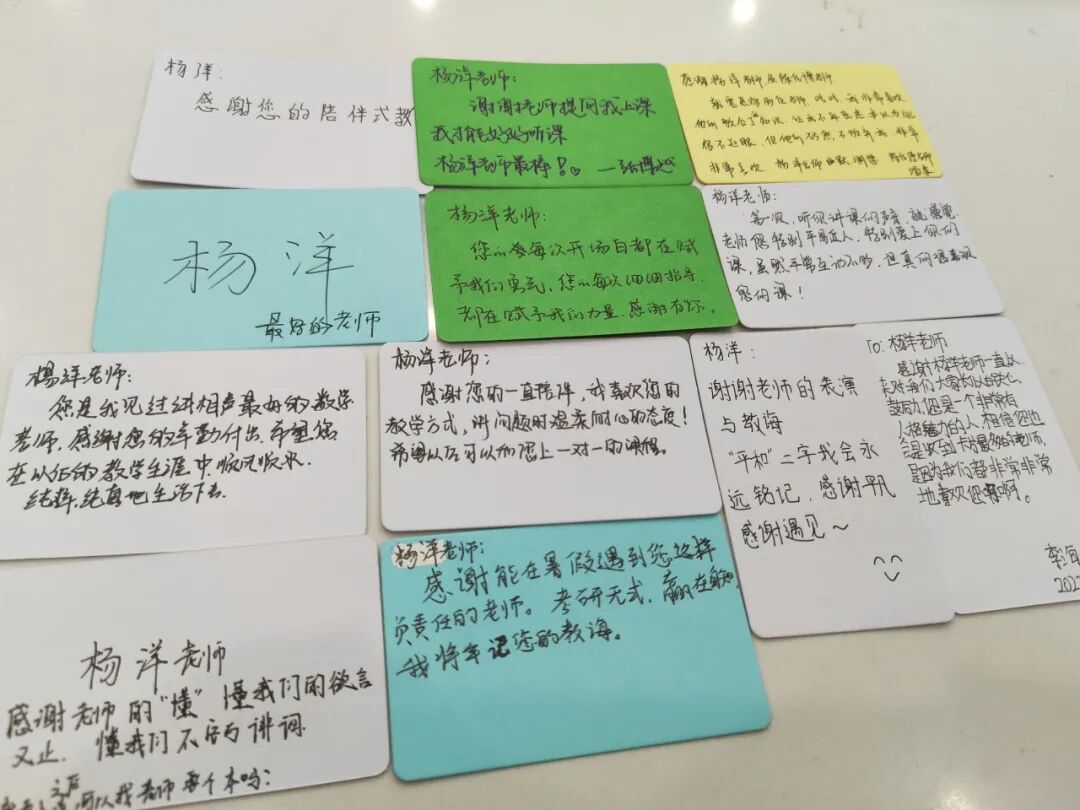 杨洋:
感谢您的陪伴式教
杨洋老师:
谢谢老师提问我上课
我才能好好听课
杨洋老师最棒!
感谢杨洋老师及陈化博老师
非常喜欢 杨洋老师幽默
杨洋
最好的老师
杨洋老师:
每次开场白都在赋
予我们勇气,您的每次细细指导
都在赋予我们力量,感谢有你。
杨洋老师:
第一次,听你讲课的声音,就感觉
老师您特别平易近人,特别爱上你的
课,虽然平常互动不多,但真的很喜欢
您的课!
楊洋老师:
您是我见过讲相声最好的数学
老师,感谢您的辛勤付出,希望您
在以后的教学生涯中顺风顺水.
纯粹,纯真地生活下去.
杨洋老师:
感谢您的一直陪伴,我喜欢您的
教学方式,讲问题时温柔耐心的态度!
希望以后可以加您上一对一的课程。
杨洋:
谢谢老师的表演
与教诲
“平和”二字我会永
远铭记,感谢平凡
感谢遇见~
TO.杨洋老师
感谢杨洋老师一直以
来对我们大家的
鼓励,您是一个非常有
人格魅力的人,相信您也
会是收到卡片最多的老师,
是因为我们都非常非常
地喜欢您啊。
杨洋老师
感谢老师的“懂”懂我们的欲言
又止.懂我们不
可以找老师要个本吗:
杨洋老师:
感谢能在暑假遇到您这样
负责任的老师。考研无式,赢在
我将牢记您的教诲。